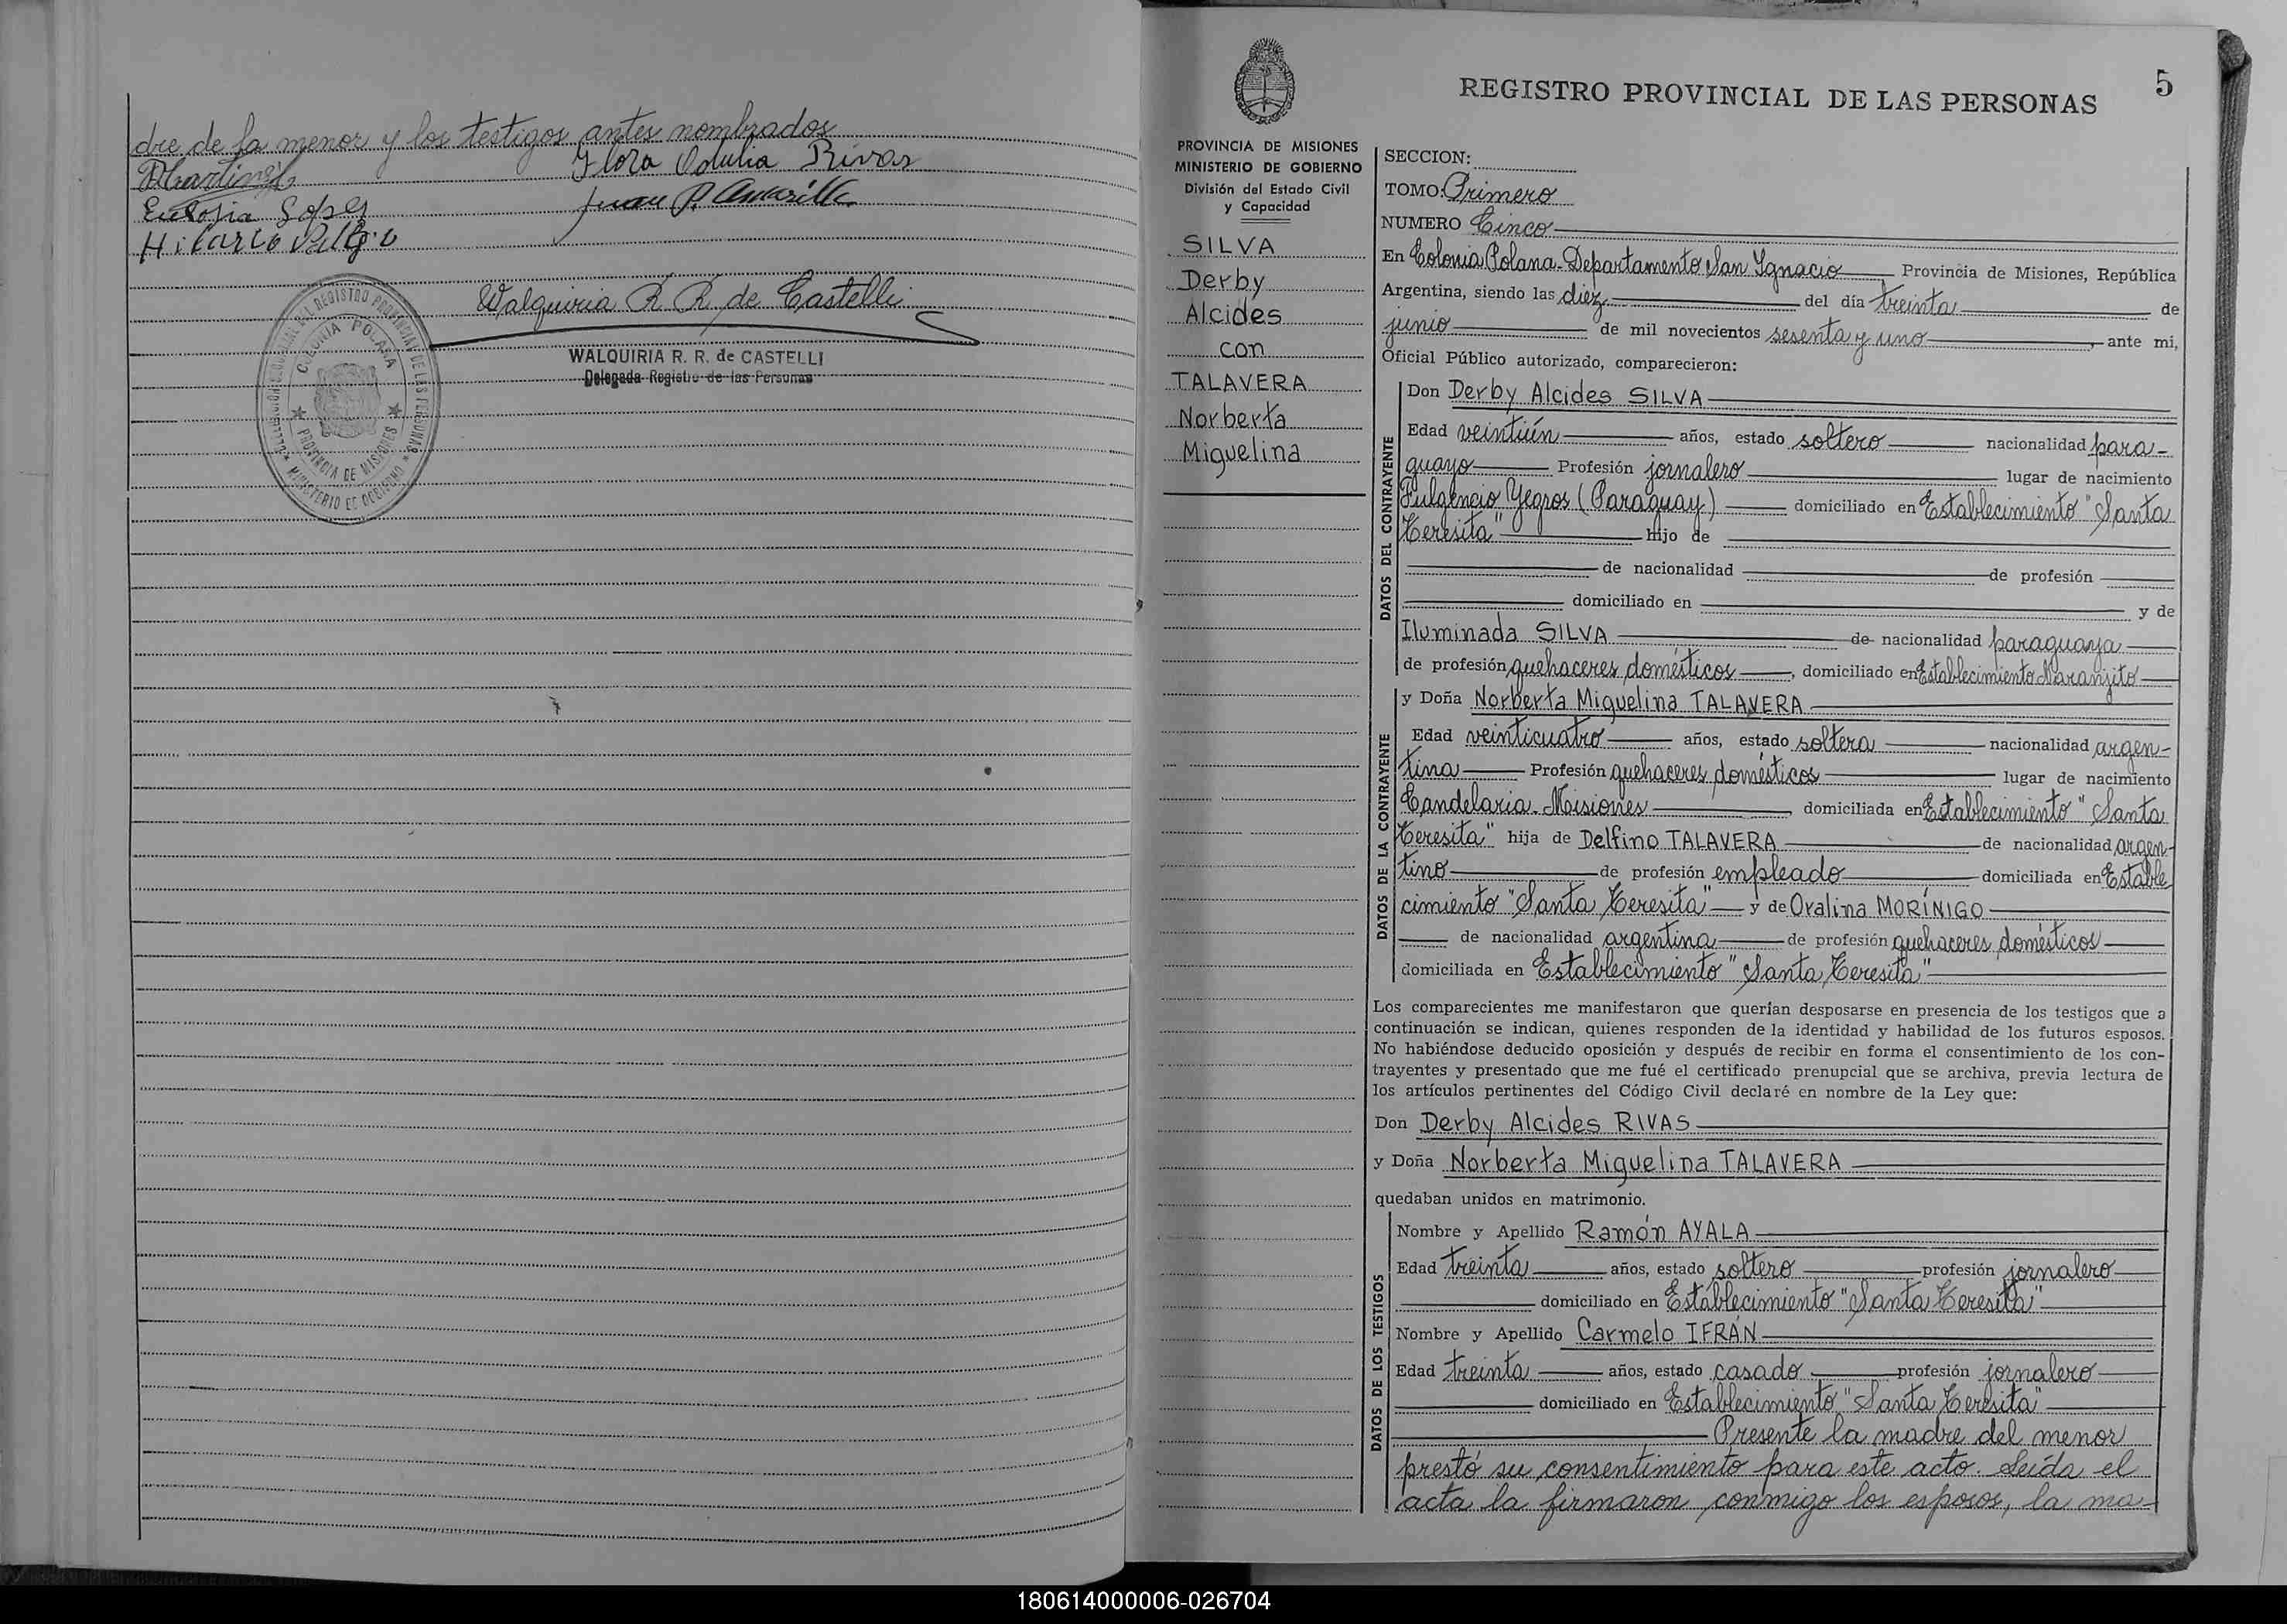 dre de la menor y los testigos antes nombrados
Martínez
Flora Odulia Rivas
Eulogia Lopez
Juan P. Amarilla
Hilario
Walquiria R. R. de Castelli
WALQUIRIA R. R. de CASTELLI
Delegada Registro de las Personas
DELEGACION SECCIONAL DEL REGISTRO PROVINCIAL DE LAS PERSONAS
COLONIA POLANA
PROVINCIA DE MISIONES
MINISTERIO DE GOBIERNO
5
REGISTRO PROVINCIAL DE LAS PERSONAS
PROVINCIA DE MISIONES
MINISTERIO DE GOBIERNO
División del Estado Civil
y Capacidad
SILVA
Derby
Alcides
con
TALAVERA
Norberta
Miguelina
SECCION:
TOMO: Primero
NUMERO Cinco
En Colonia Polana - Departamento San Ignacio Provincia de Misiones, República
Argentina, siendo las diez del día treinta de
junio de mil novecientos sesenta y uno, ante mi,
Oficial Público autorizado, comparecieron:
DATOS DEL CONTRAYENTE
Don Derby Alcides SILVA
Edad veintiún años, estado soltero nacionalidad para-
guayo Profesión jornalero lugar de nacimiento
Fulgencio Yegros (Paraguay) domiciliado en Establecimiento "Santa
Teresita" Hijo de
de nacionalidad de profesión
domiciliado en y de
Iluminada SILVA de nacionalidad paraguaya
de profesión quehaceres domésticos, domiciliado en Establecimiento Naranjito
DATOS DE LA CONTRAYENTE
y Doña Norberta Miguelina TALAVERA
Edad veinticuatro años, estado soltera nacionalidad argen-
tina Profesión quehaceres domésticos lugar de nacimiento
Candelaria - Misiones domiciliada en Establecimiento "Santa
Teresita" hija de Delfino TALAVERA de nacionalidad argen-
tino de profesión empleado domiciliada en Estable
cimiento "Santa Teresita" y de Ovalina MORÍNIGO
de nacionalidad argentina de profesión quehaceres domésticos
domiciliada en Establecimiento "Santa Teresita"
Los comparecientes me manifestaron que querían desposarse en presencia de los testigos que a
continuación se indican, quienes responden de la identidad y habilidad de los futuros esposos.
No habiéndose deducido oposición y después de recibir en forma el consentimiento de los con-
trayentes y presentado que me fué el certificado prenupcial que se archiva, previa lectura de
los artículos pertinentes del Código Civil declaré en nombre de la Ley que:
Don Derby Alcides RIVAS
y Doña Norberta Miguelina TALAVERA
quedaban unidos en matrimonio.
DATOS DE LOS TESTIGOS
Nombre y Apellido Ramón AYALA
Edad treinta años, estado soltero profesión jornalero
domiciliado en Establecimiento "Santa Teresita"
Nombre y Apellido Carmelo IFRÁN
Edad treinta años, estado casado profesión jornalero
domiciliado en Establecimiento "Santa Teresita"
Presente la madre del menor
prestó su consentimiento para este acto. Leída el
acta la firmaron conmigo los esposos, la ma-
180614000006-026704